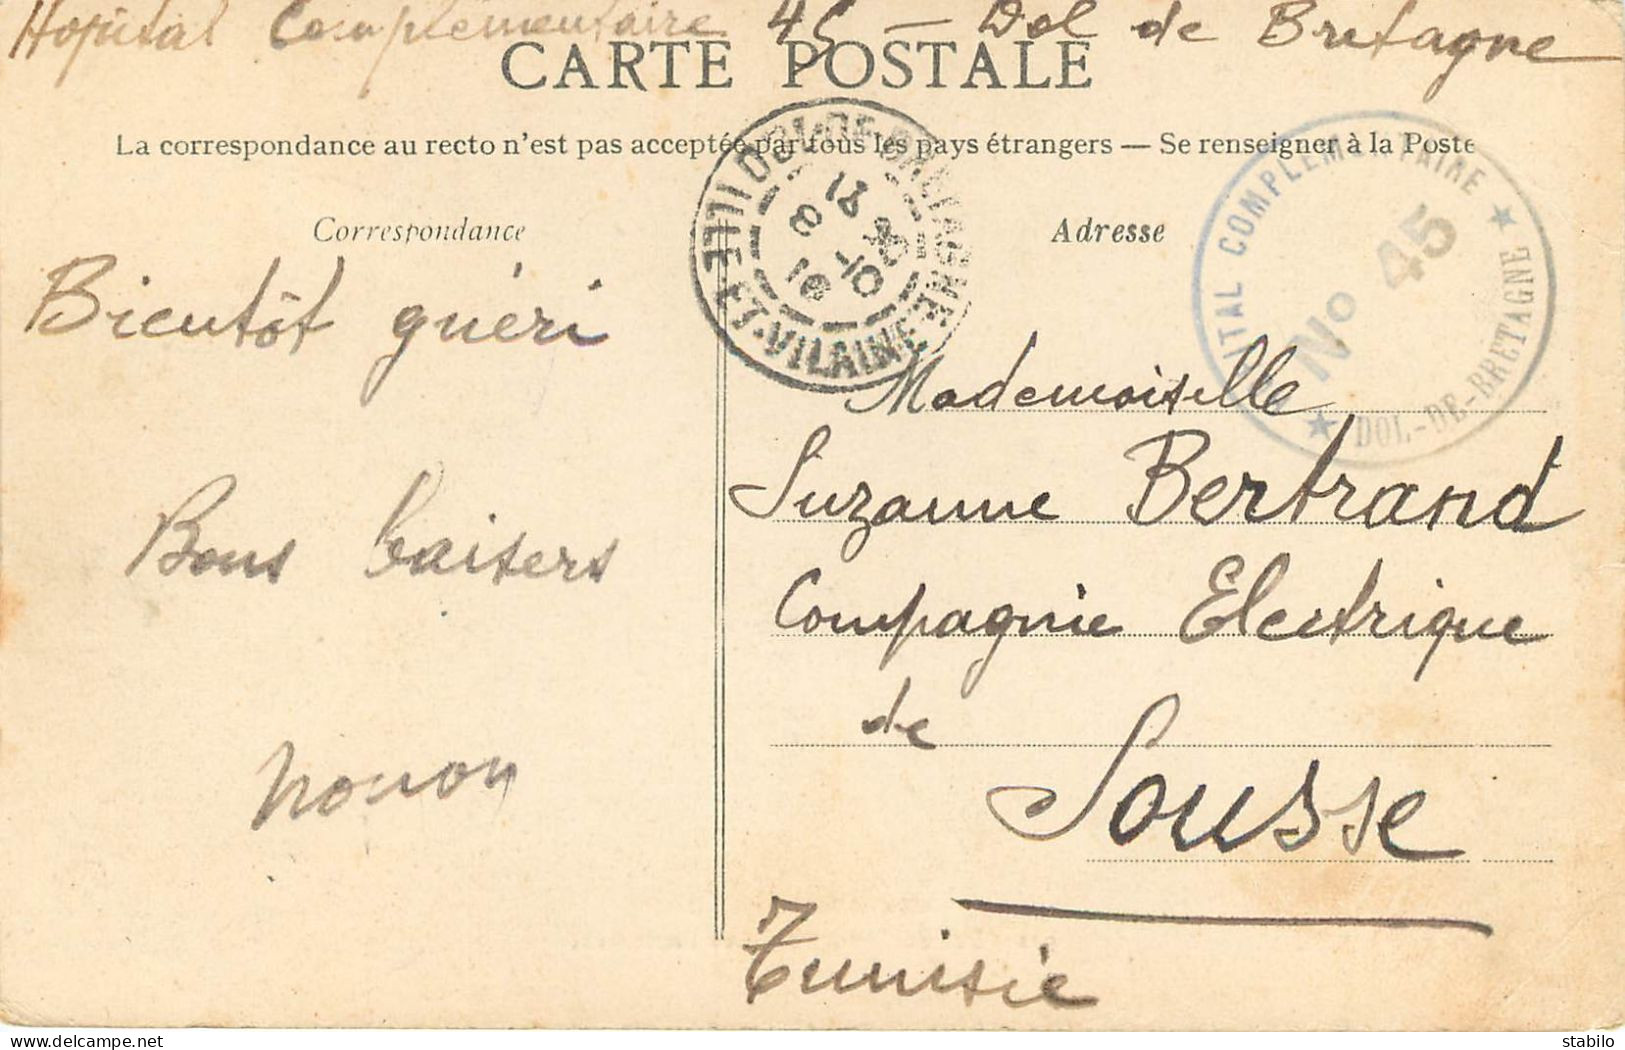 Hopital Complémentaire 45 — Dol de Bretagne
CARTE POSTALE
La correspondance au recto n'est pas acceptée par tous les pays étrangers — Se renseigner à la Poste
Correspondance
Bientôt guéri
Bons baisers
nonon
DOL-DE-BRETAGNE
ILLE-ET-VILAINE
Adresse
ITAL COMPLEMENTAIRE
No 45
★ DOL-DE-BRETAGNE ★
Mademoiselle
Suzanne Bertrand
Compagnie Electrique
de
Sousse
Tunisie
delcampe.net
stabilo